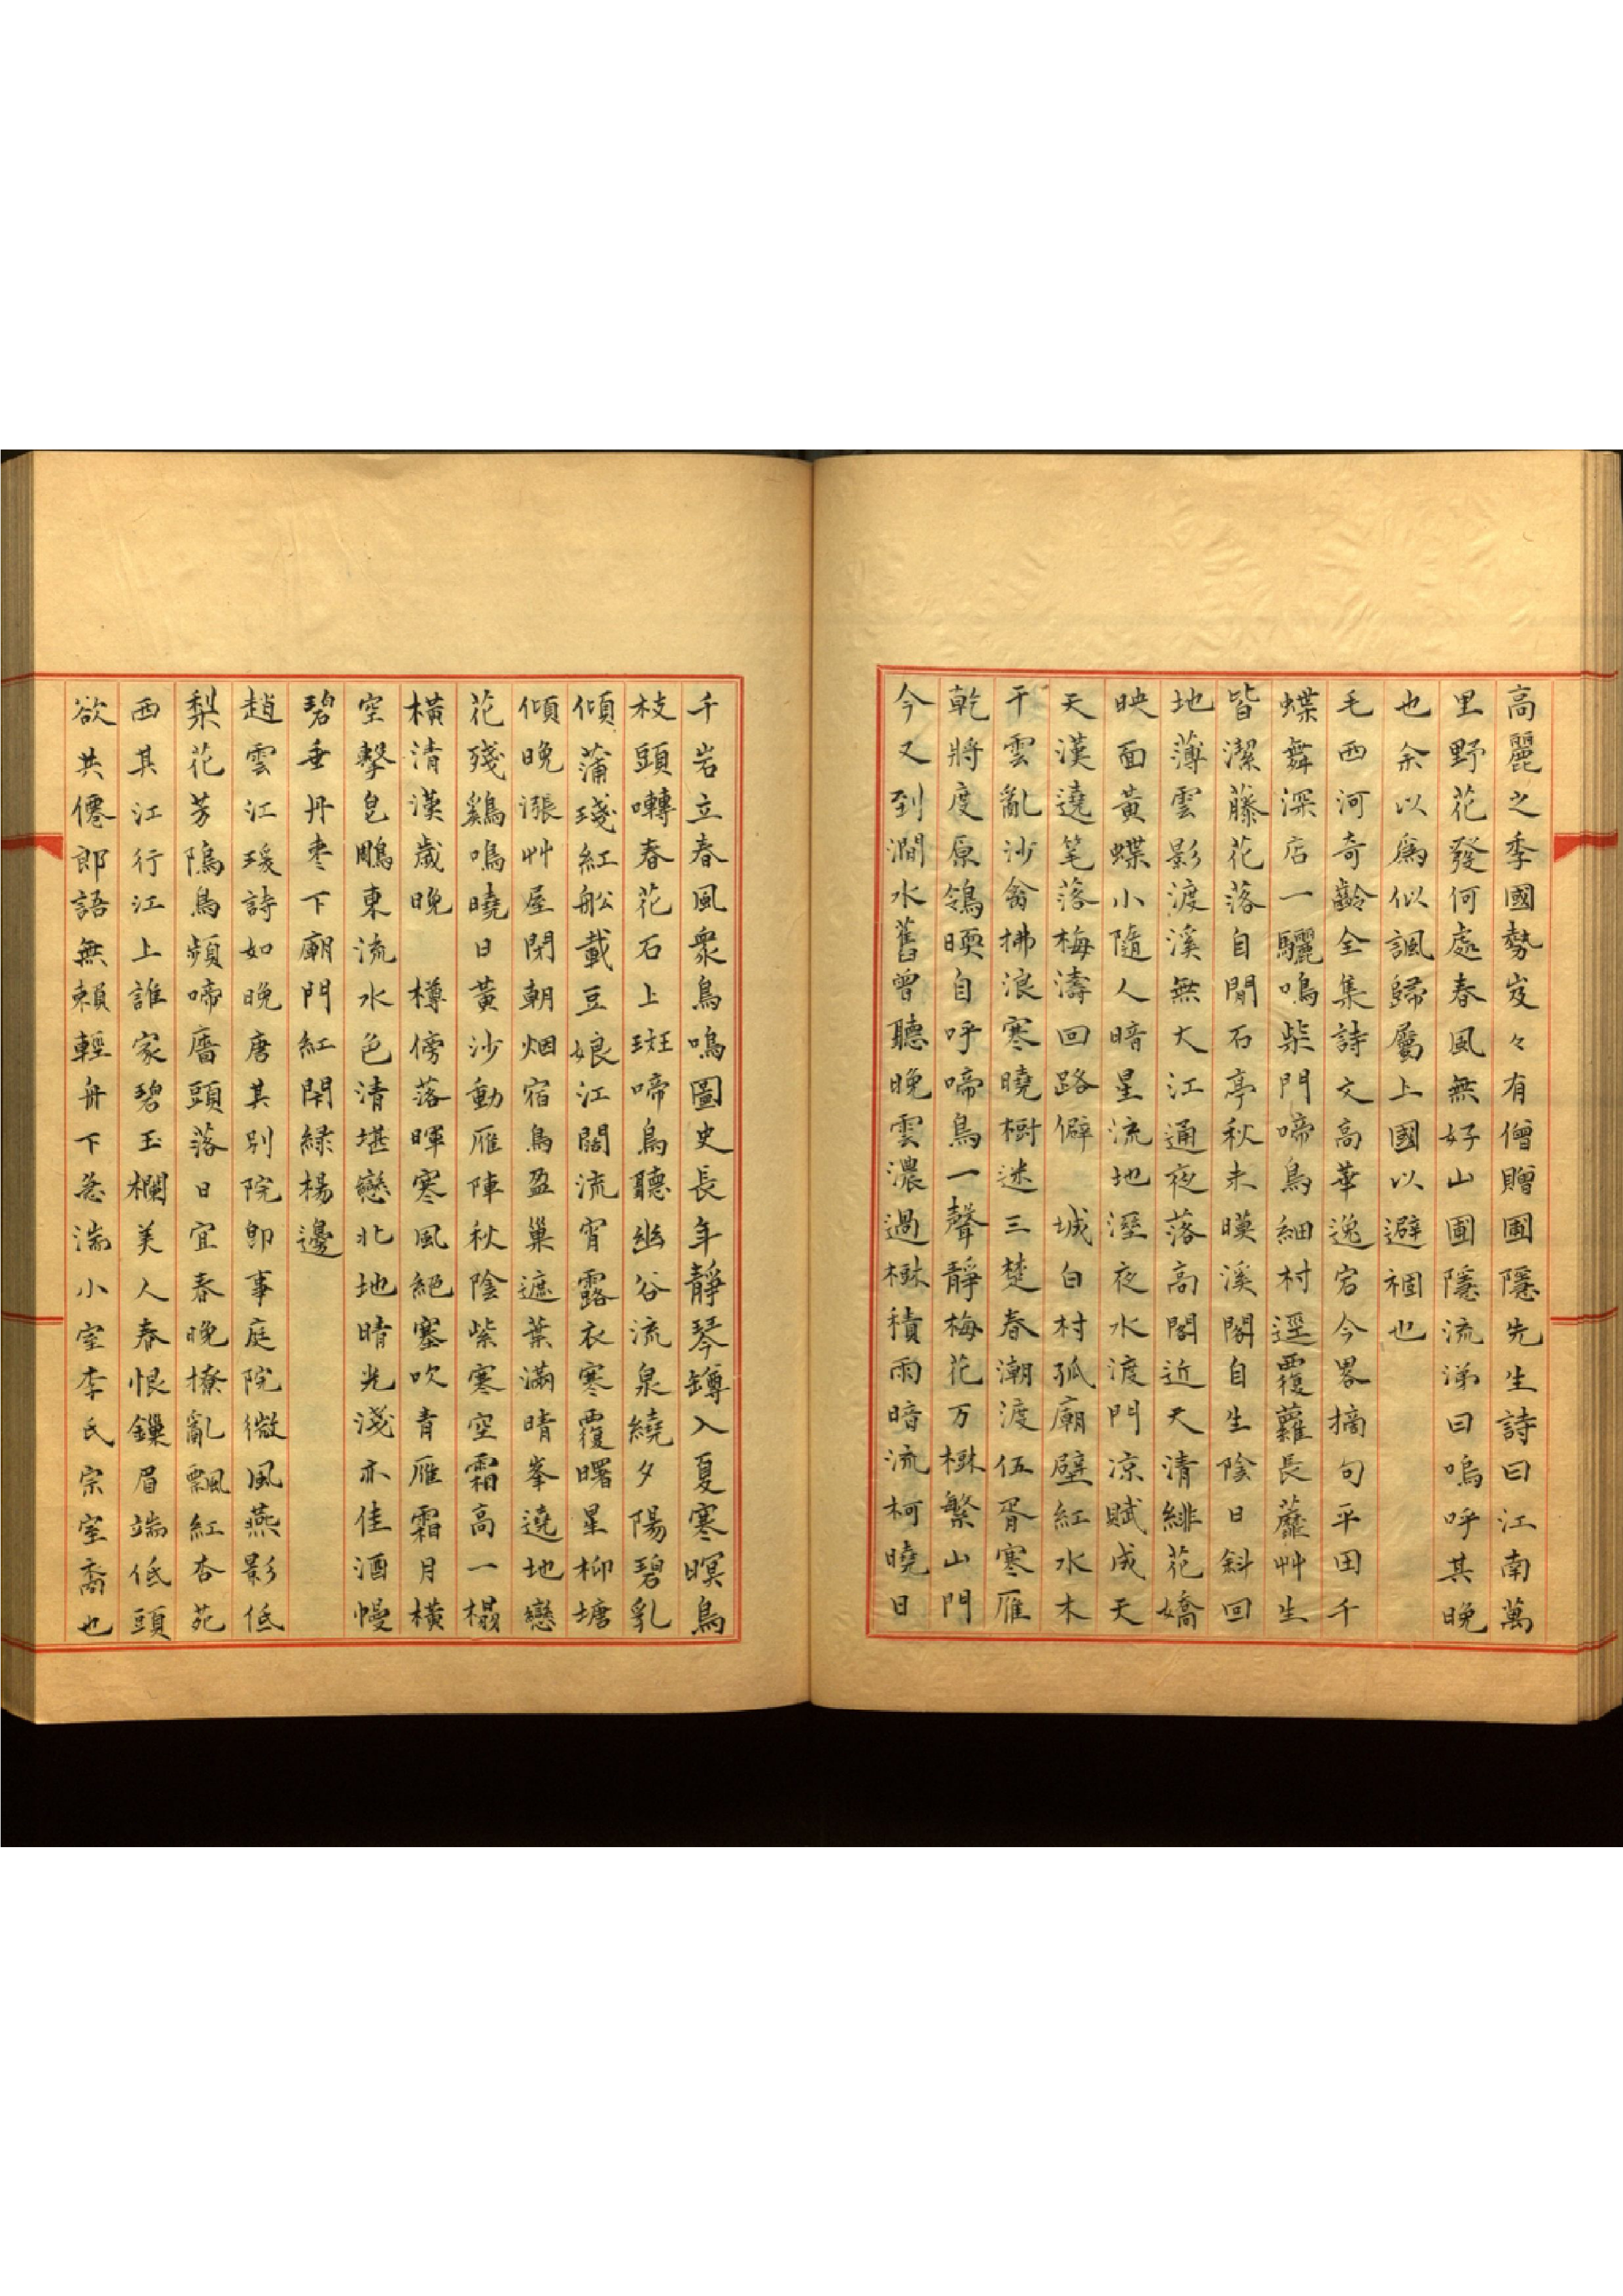 高麗之季國勢岌々有僧贈圃隱先生詩曰江南萬
里野花發何處春風無好山圃隱流涕曰嗚呼其晚
也余以爲似諷歸屬上國以避禍也
毛西河奇齡全集詩文高華逸宕今畧摘句平田千
蝶舞深店一驪鳴柴門啼鳥細村逕覆蘿長蘼艸生
皆潔藤花落自閒石亭秋未暎溪閣自生陰日斜回
地薄雲影渡溪無大江通夜落高閣近天清緋花嬌
映面黃蝶小隨人暗星流地溼夜水渡門凉賦成天
天漢遶笔落梅濤回路僻 城白村孤廟壁紅水木
干雲亂沙禽拂浪寒曉樹迷三楚春潮渡伍胥寒雁
乾將度原鴒暎自呼啼鳥一聲靜梅花万樹繁山門
今又到澗水舊曾聽晚雲濃過樹積雨暗流柯曉日
千岩立春風衆鳥鳴圖史長年靜琴罇入夏寒暝鳥
枝頭囀春花石上斑啼鳥聽幽谷流泉繞夕陽碧乳
傾蒲琖紅舩載豆娘江闊流宵露衣寒覆曙星柳塘
傾晚漲艸屋閉朝烟宿鳥盈巢遮葉滿晴峯遶地戀
花殘鷄鳴曉日黃沙動雁陣秋陰紫寒空霜高一榻
橫清漢歲晚 樽傍落暉寒風絕塞吹青雁霜月橫
空擊皀鵰東流水色清堪戀北地晴光淺亦佳酒幔
碧垂丹枣下廟門紅閉綠楊邊
趙雲江瑗詩如晚唐其別院卽事庭院微風燕影低
梨花芳隖鳥頻啼牆頭落日宜春晚撩亂飄紅杏苑
西其江行江上誰家碧玉欄美人春恨鏁眉端低頭
欲共僊郎語無賴輕舟下急湍小室李氏宗室裔也